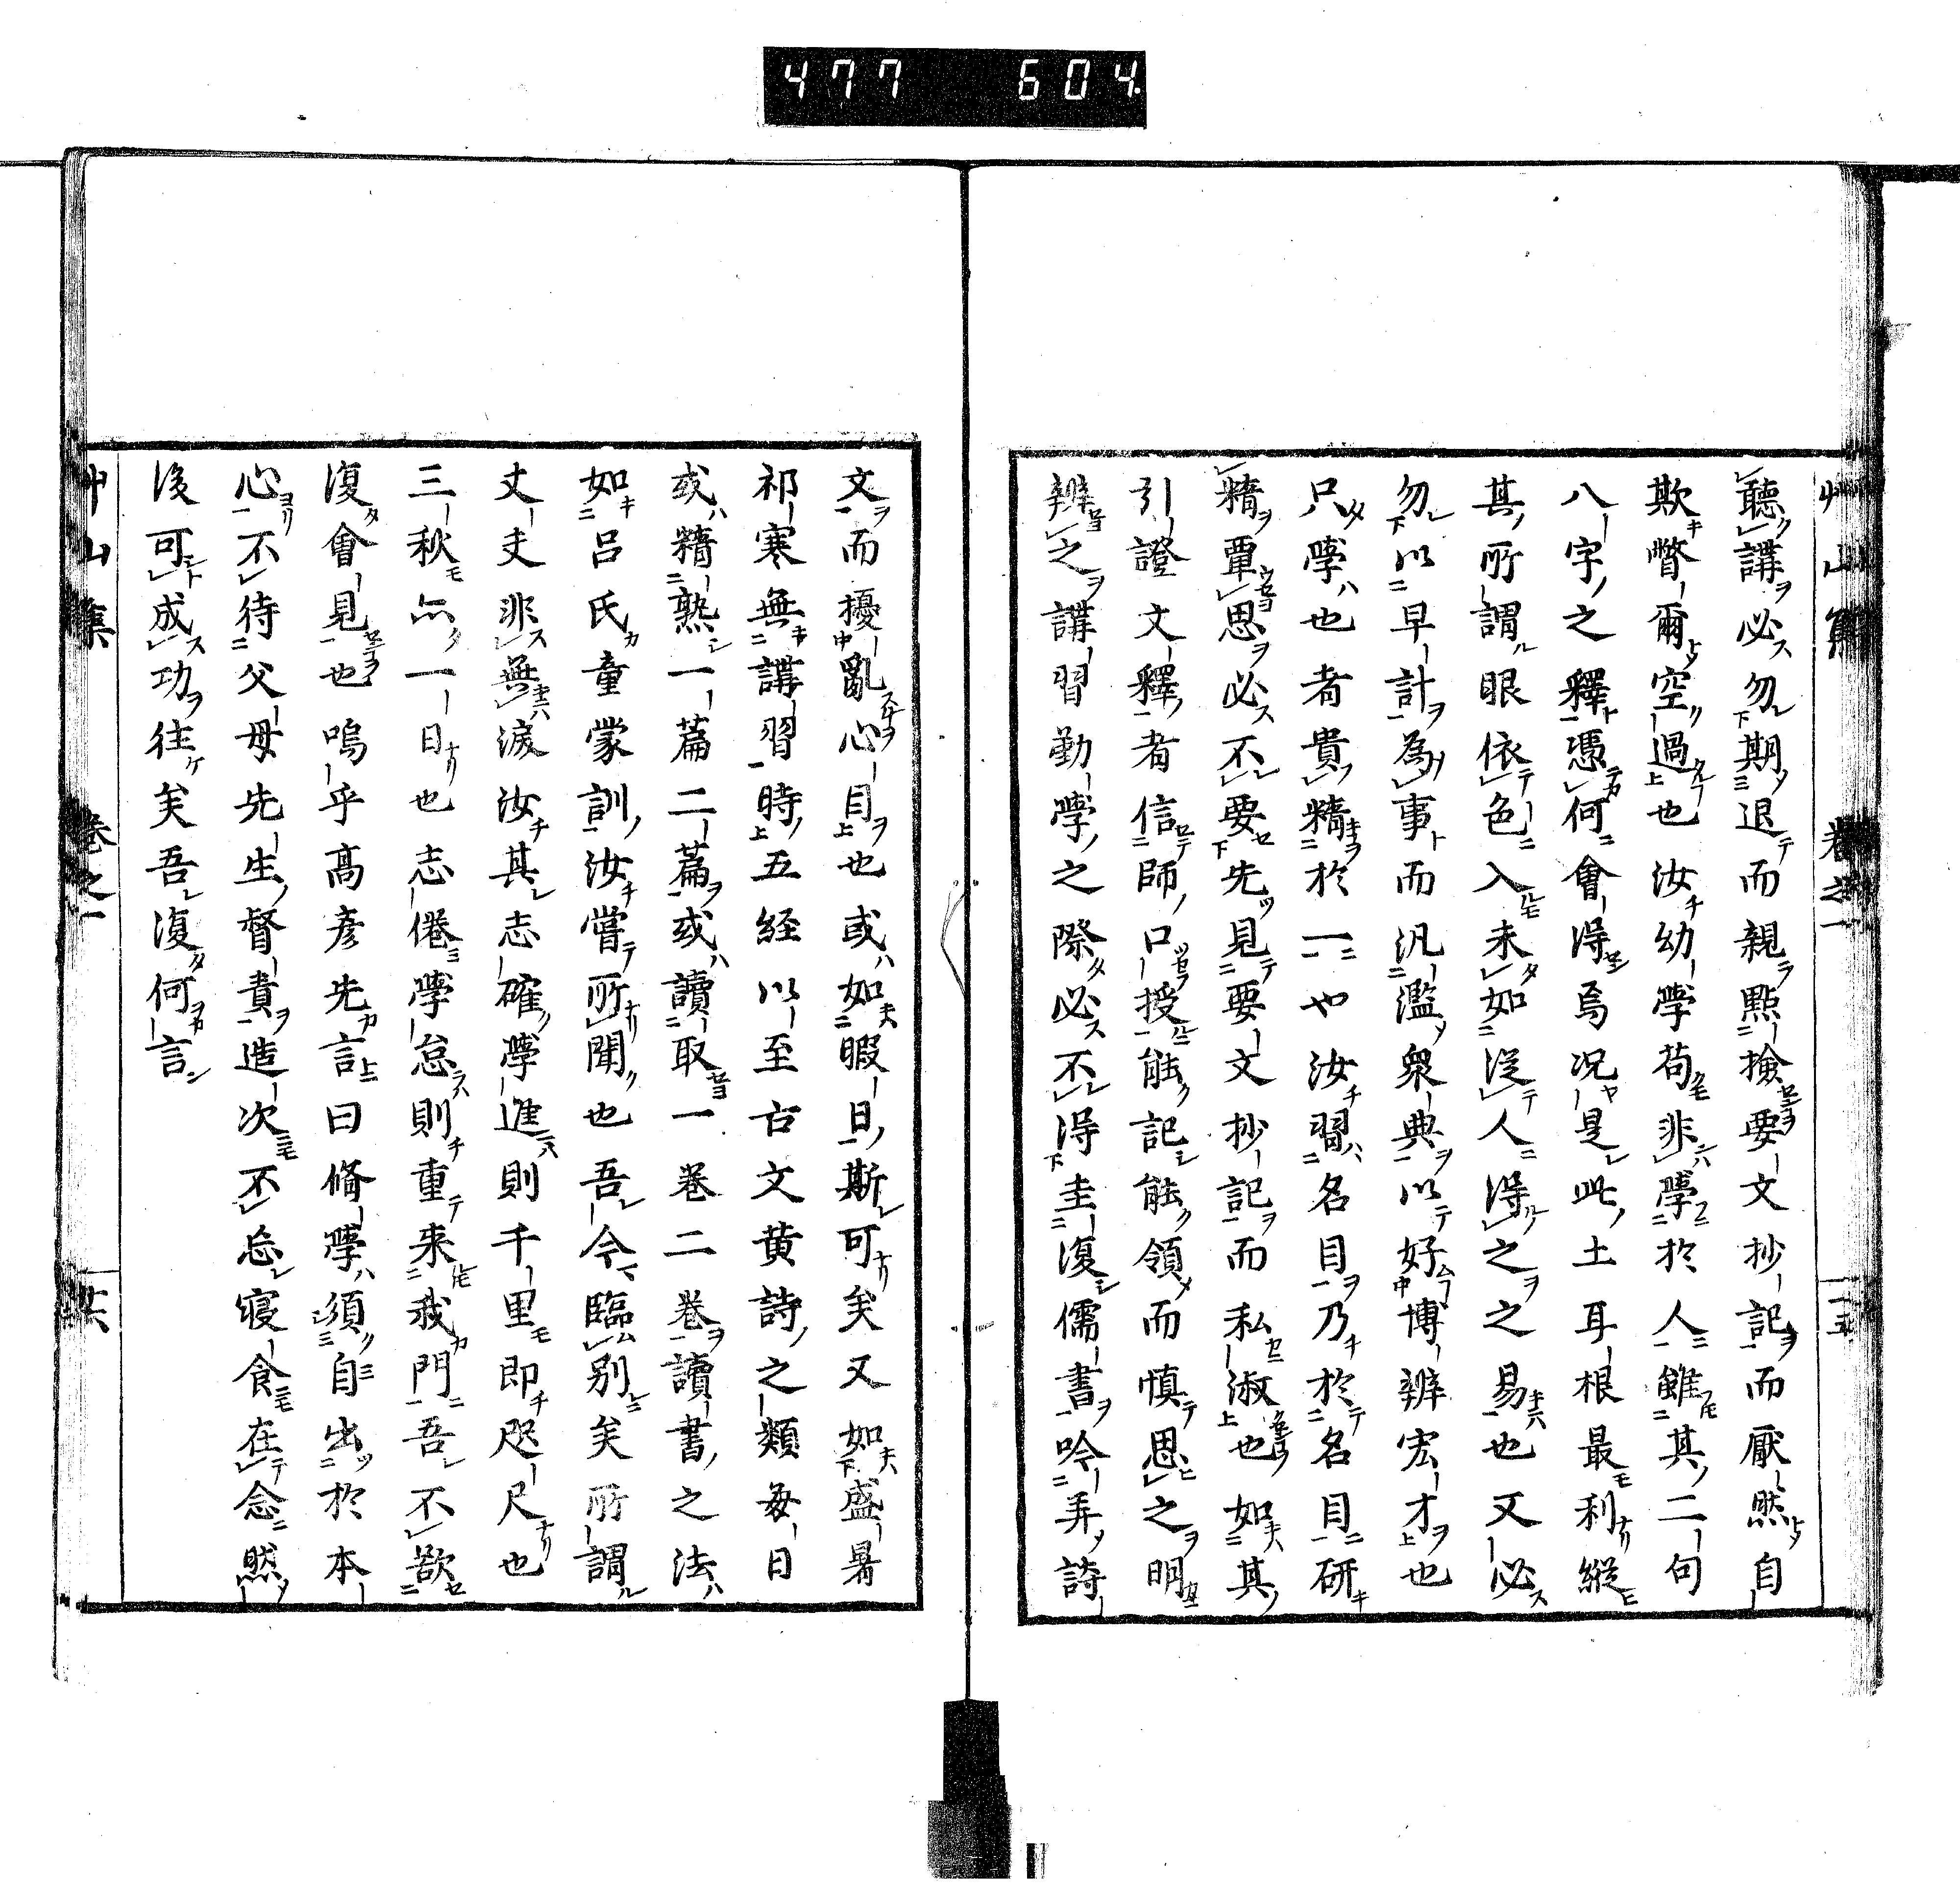 477 604
艸山集 卷之一 十五
聽講必勿期退而親點撿要文抄記而厭然自
欺瞥爾空過也汝幼學苟非學於人雖其二句
八字之釋憑何會得焉况是此土耳根最利縱
其所謂眼依色入未如從人得之之易也又必
勿以早計為事而汎濫衆典以好博辨宏才也
只學也者貴精於一也汝習名目乃於名目研
精覃思必不要先見要文抄記而私淑也如其
引證文釋者信師口授能記能領而慎思之明
辨之講習勤學之際必不得圭復儒書吟弄詩
文而擾亂心目也或如暇日斯可矣又如盛暑
祁寒無講習時五経以至古文黄詩之類每日
或精熟一篇二篇或讀取一卷二卷讀書之法
如呂氏童蒙訓汝嘗所聞也吾今臨別矣所謂
丈夫非無淚汝其志確學進則千里即咫尺也
三秋亦一日也志倦學怠則重来我門吾不欲
復會見也嗚乎高彦先言曰脩學須自出於本
心不待父母先生督責造次不忘寝食在念然
後可成功往矣吾復何言
艸山集 卷之一 十六